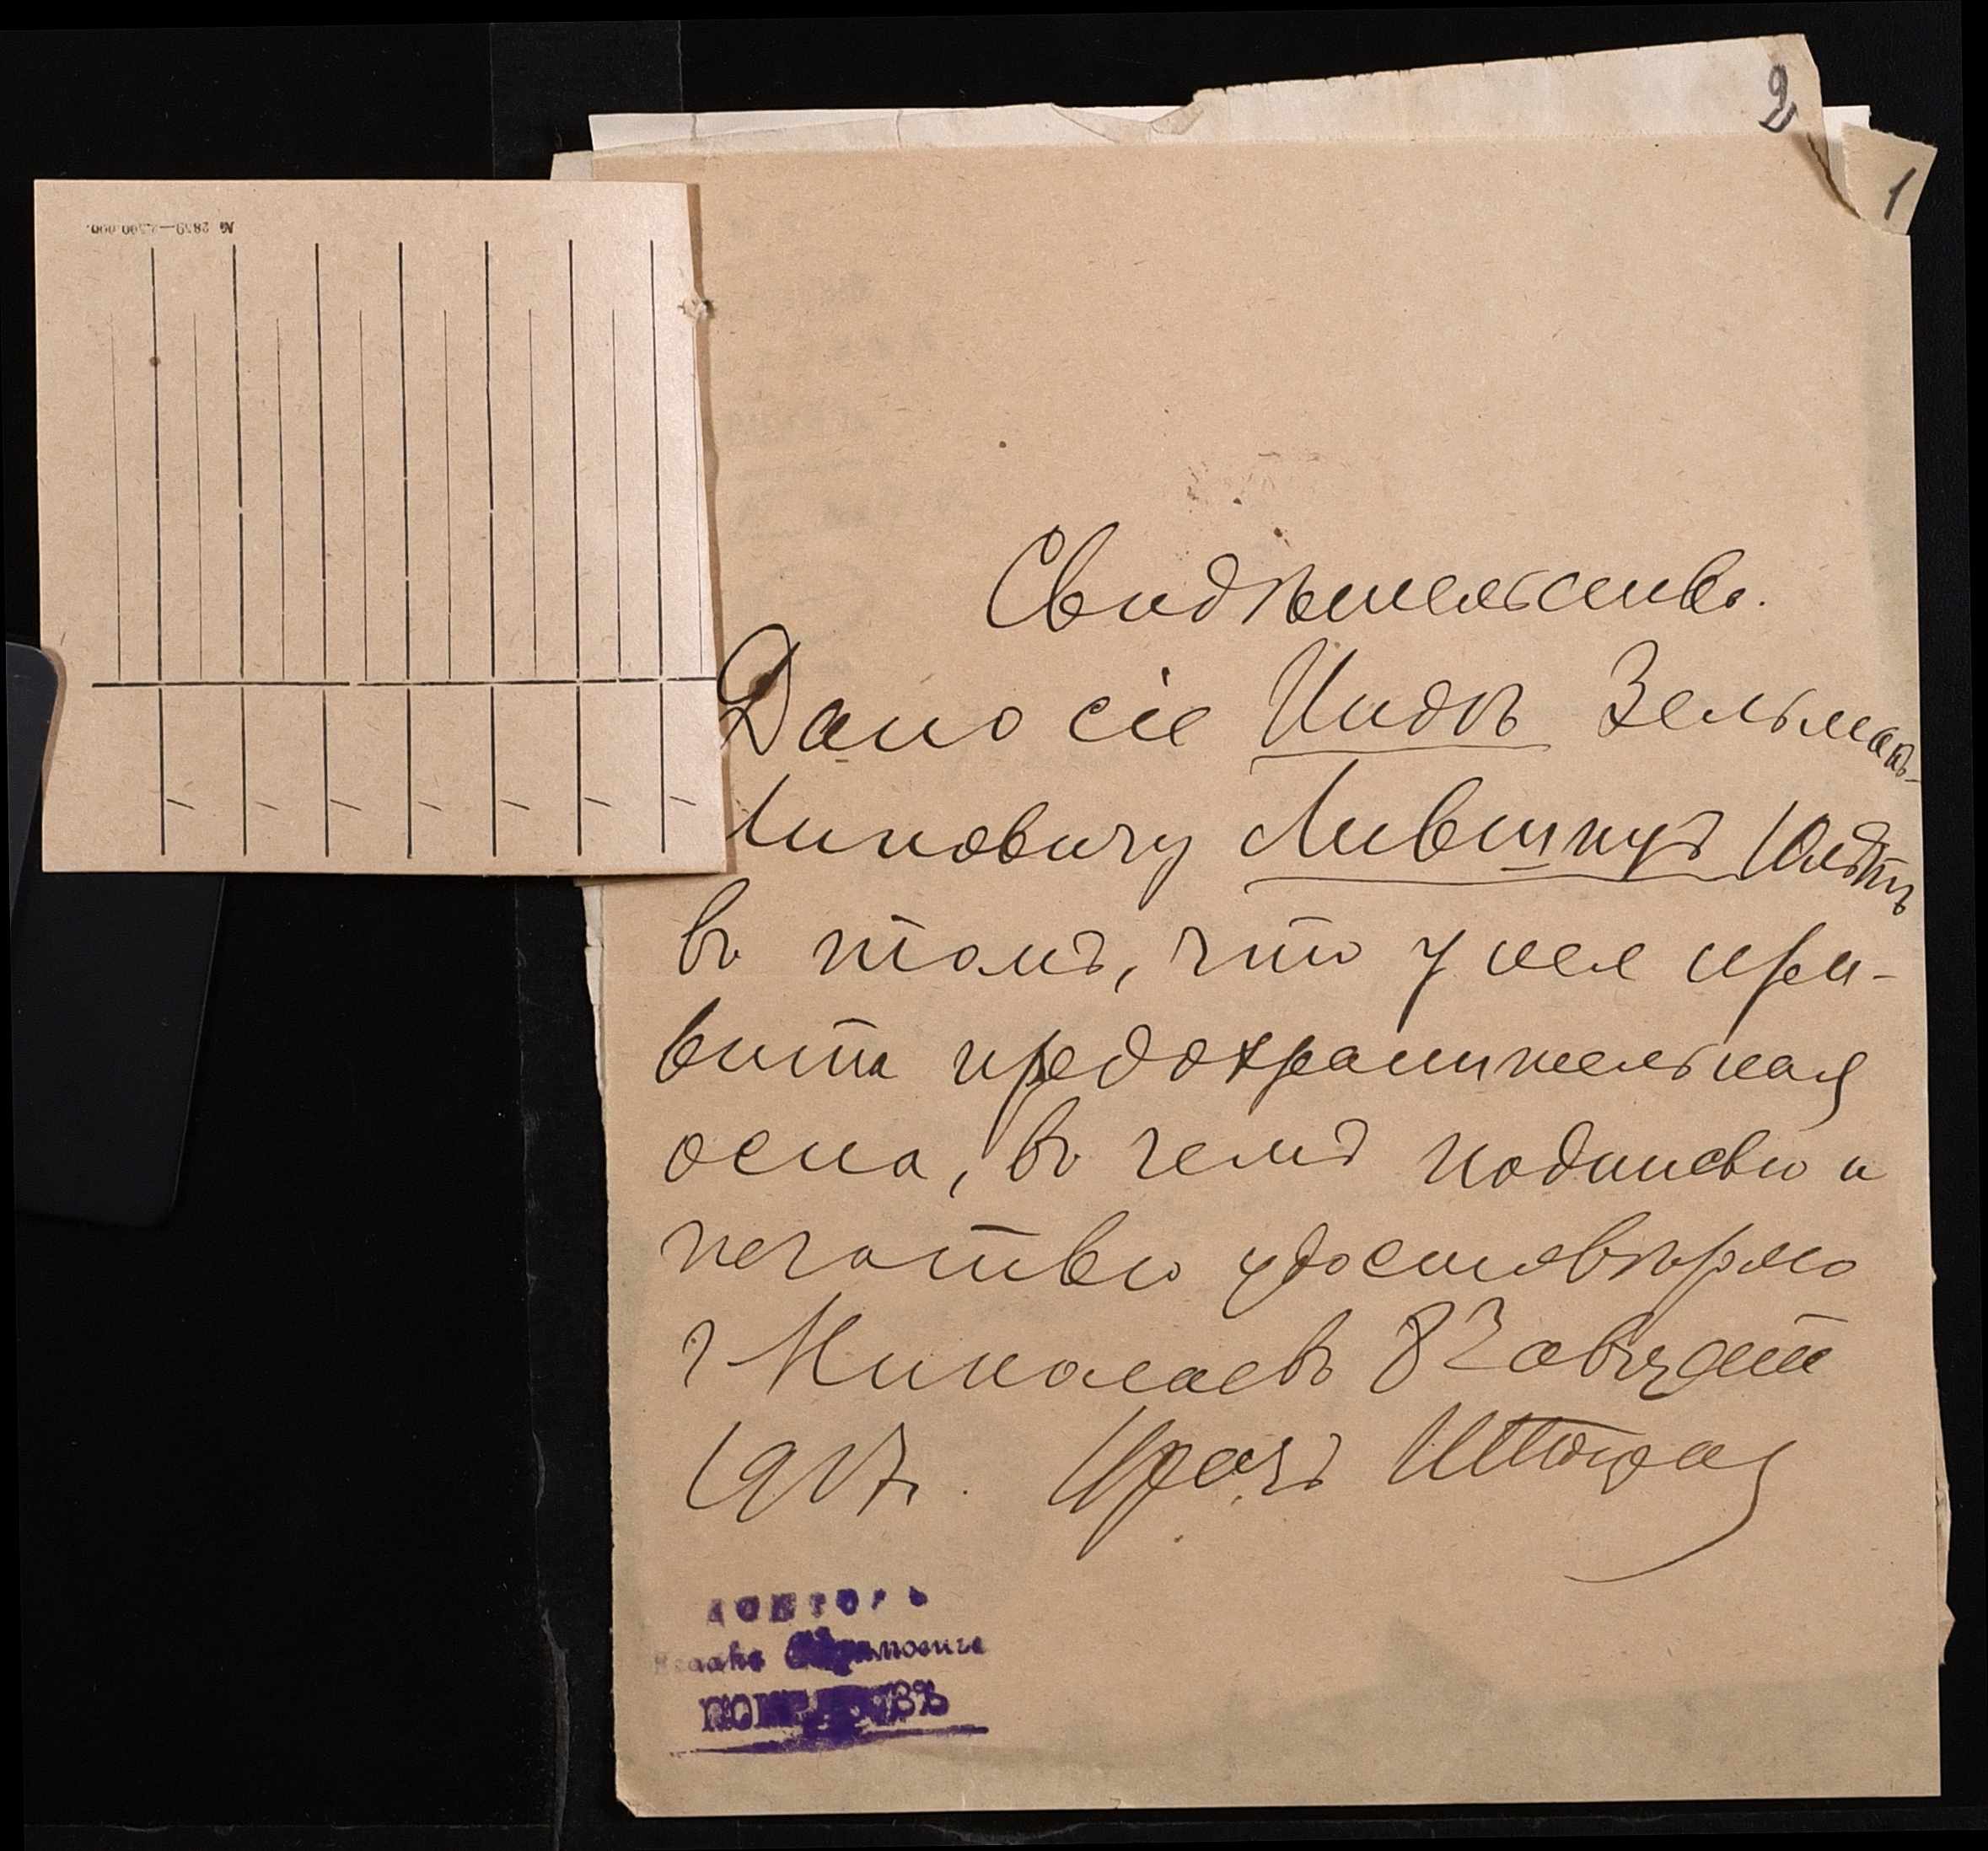 2
1
№ 2859—2.500.000.
Свидѣтельство.
Дано сіе Иидѣ Зельман-
овичу Лившицъ 10 лѣтъ
въ томъ, что у нея при-
вита предохранительная
оспа, въ чемъ подписью и
печатью удостовѣряю
г Николаевъ 82 августа
1917г. Врачъ
ДОКТОРЪ